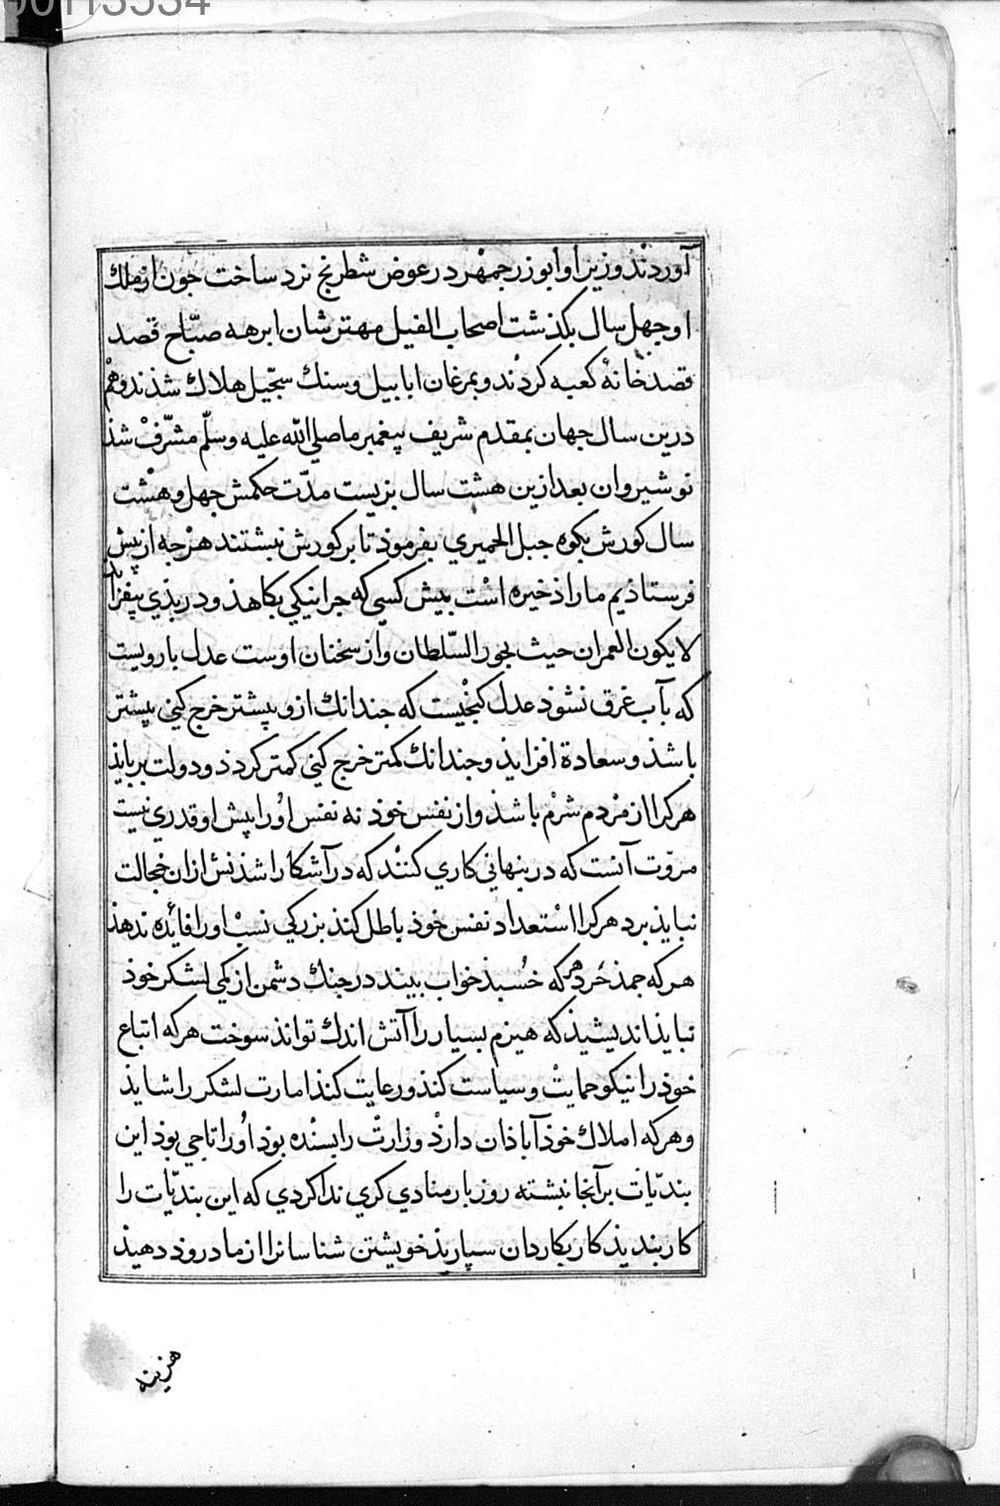 00113534
آوردند وزیر او ابوزرجمهر در عوض شطرنج نرد ساخت جون از ملك
او جهل سال بکذشت اصحاب الفیل مهترشان ابرهه صبّاح قصد
قصد خانهٔ کعبه کردند و بمرغان ابابیل و سنك سجّیل هلاك شذند و هم
درین سال جهان بمقدم شریف پیغمبر ما صلی الله علیه وسلّم مشرّف شذ
نوشیروان بعد ازین هشت سال بزیست مدّت حکمش جهل و هشت
سال کورش بکوه جبل الحمیري بفرموذ تا بر کورش نبشتند هرجه از پیش
فرستاذیم ما را ذخیره است بیش کسی که جرا نیکي بکاهذ و در بذي بیفزاید
لا یکون العمران حیث یجور السّلطان و از سخنان اوست عدل بارویست
که بآب غرق نشوذ عدل کنجیست که جندانك ازو بیشتر خرج کني بیشتر
باشذ و سعادة افزایذ و جندانك کمتر خرج کني کمتر کردذ و دولت برباید
هر کرا از مردم شرم باشذ و از نفس خوذ نه نفس اورا پیش او قدري نیست
مروّت آنست که در پنهاني کاري کنند که در آشکارا شذنش ازان خجالت
نبایذ برد هر کرا استعداد نفس خوذ باطل کنذ بزرکي نسب اورا فائده ندهذ
هر که جمذ خرد هر که خسبذ خواب بیند در جنك دشمن از کمي لشکر خوذ
نبایذ اندیشیذ که هیزم بسیار را آتش اندك تواند سوخت هر که اتباع
خوذ را نیکو حمایت و سیاست کنذ و رعایت کنذ امارت لشکر را شایذ
و هر که املاك خوذ آباذان دارذ وزارت را بسنده بوذ اورا تاجي بوذ این
بندیّات بر آنجا نبشته روز بار منادي کري ندا کردي که این بندیّات را
کار بندید کار بکاردان سپارید خویشتن شناسانرا از ما درود دهید
هزینه